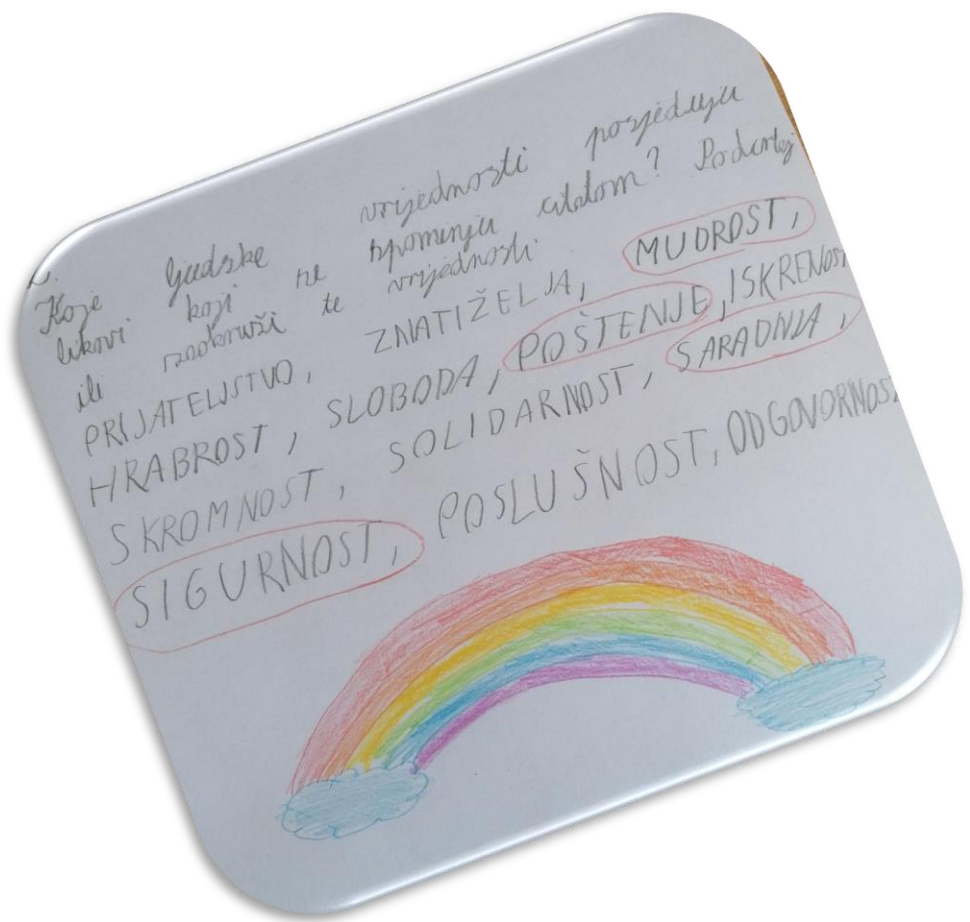 Koje ljudske vrijednosti posjeduju
likovi koji se spominju citatom? Podcrtaj
ili zaokruži te vrijednosti
PRIJATELJSTVO, ZNATIŽELJA, MUDROST,
HRABROST, SLOBODA, POŠTENJE, ISKRENOST
SKROMNOST, SOLIDARNOST, SARADNJA,
SIGURNOST, POSLUŠNOST, ODGOVORNOST